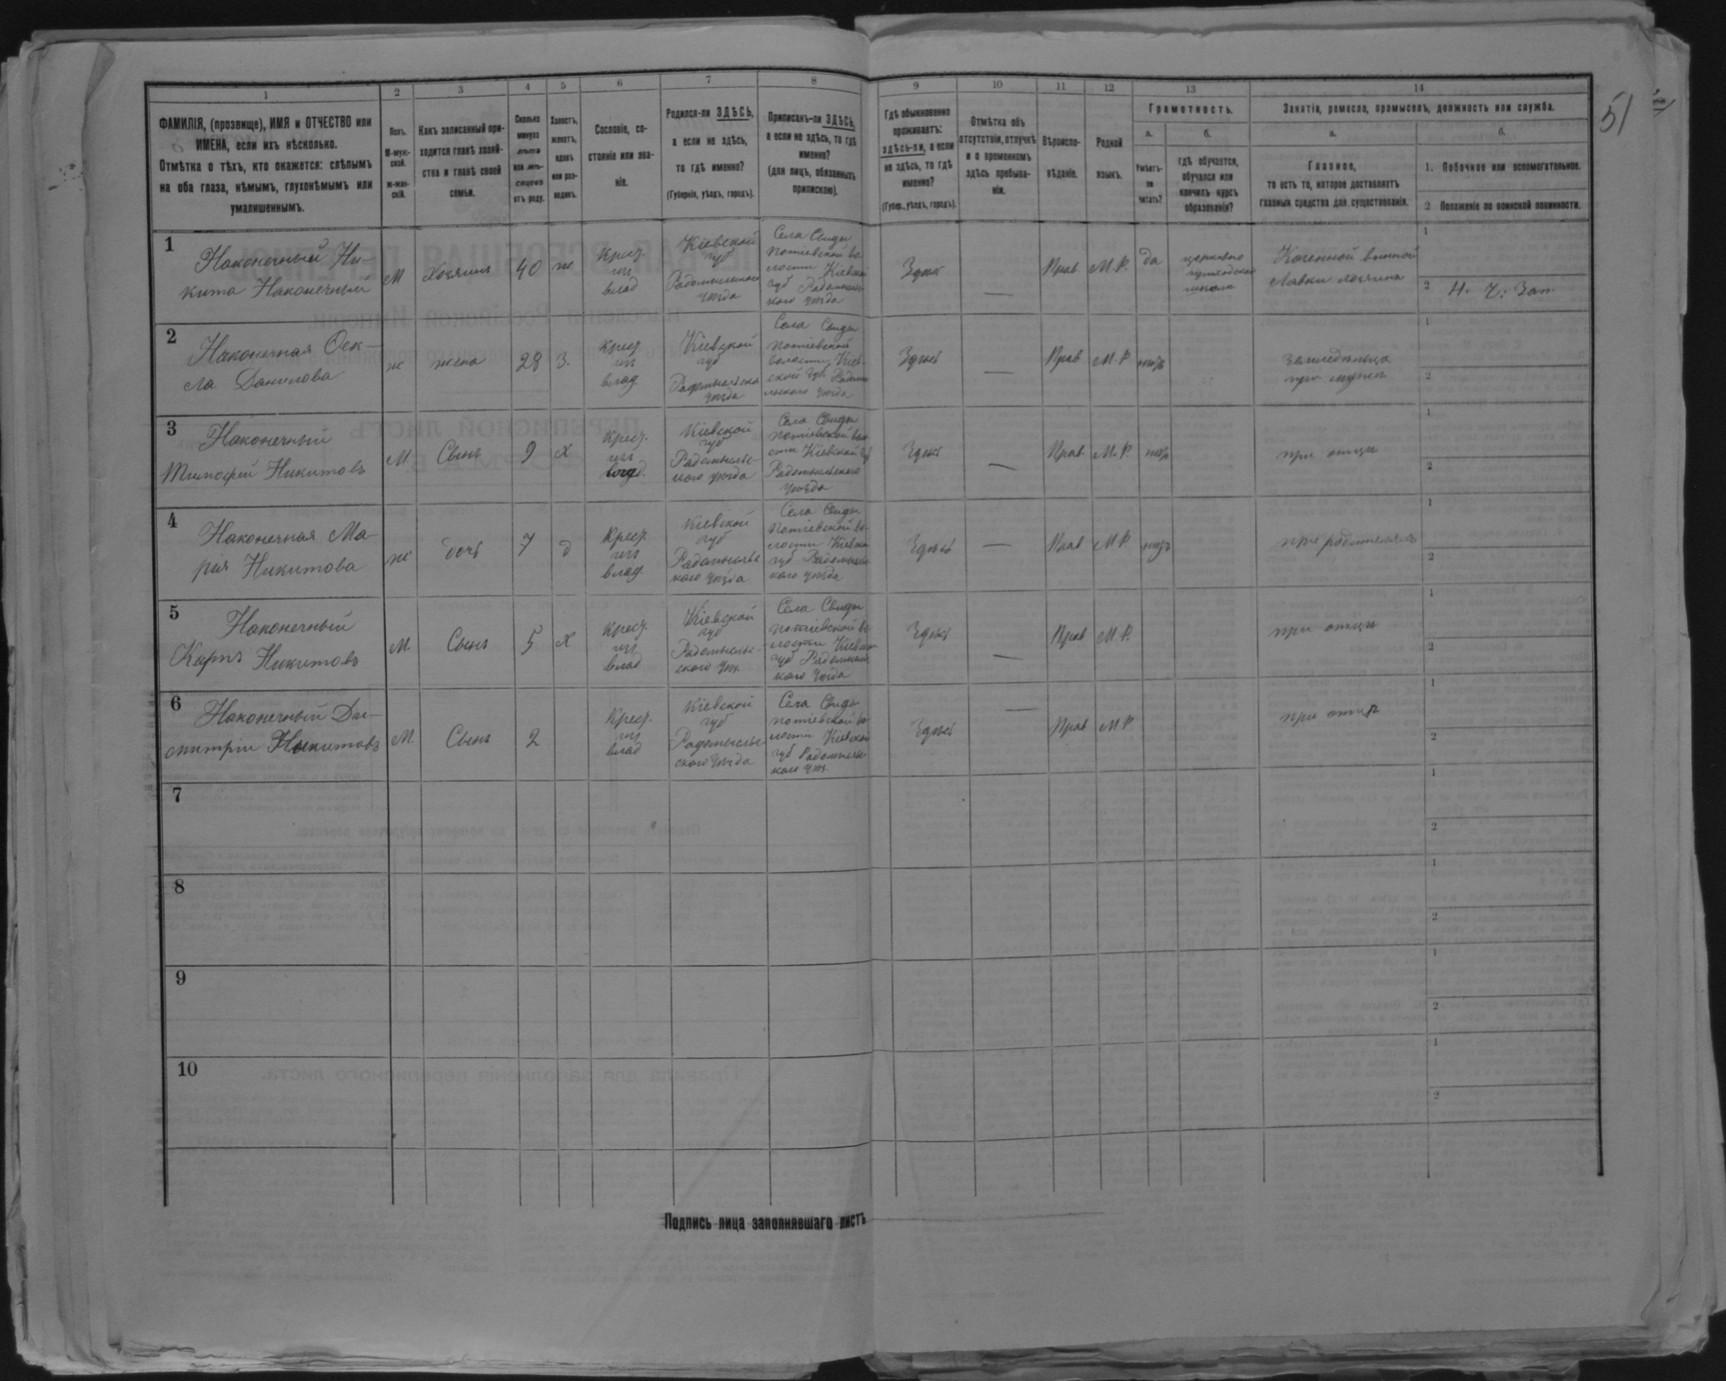 51
1
2
3
4
5
6
7
8
9
10
11
12
13
14
ФАМИЛІЯ, (прозвище), ИМЯ и ОТЧЕСТВО или
ИМЕНА, если ихъ нѣсколько.
Отмѣтка о тѣхъ, кто окажется: слѣпымъ
на оба глаза, нѣмымъ, глухонѣмымъ или
умалишеннымъ.
Полъ.
М-муж-
ской.
ж-жен-
скій.
Какъ записанный при-
ходится главѣ хозяй-
ства и главѣ своей
семьи.
Сколько
минуло
лѣтъ
или мѣ-
сяцевъ
отъ роду.
Холостъ,
женатъ,
вдовъ
или раз-
веденъ.
Сословіе, со-
стояніе или зва-
ніе.
Родился-ли ЗДѢСЬ,
а если не здѣсь,
то гдѣ именно?
(Губернія, уѣздъ, городъ).
Приписанъ-ли ЗДѢСЬ,
а если не здѣсь, то гдѣ
именно?
(для лицъ, обязанныхъ
припискою).
Гдѣ обыкновенно
проживаетъ:
здѣсь-ли, а если
не здѣсь, то гдѣ
именно?
(Губер., уѣздъ, городъ).
Отмѣтка объ
отсутствіи, отлучкѣ
и о временномъ
здѣсь пребыва-
ніи.
Вѣроиспо-
вѣданіе.
Родной
языкъ.
Грамотность.
а.
Умѣетъ-
ли
читать?
б.
гдѣ обучается,
обучался или
кончилъ курсъ
образованія?
Занятія, ремесло, промыселъ, должность или служба.
а.
Главное,
то есть то, которое доставляетъ
главныя средства для существованія.
б.
1. Побочное или вспомогательное.
2 Положеніе по воинской повинности.
1
Наконечный Ни-
кита Наконечный
М
Хозяинъ
40
ж
Крест.
изъ
влад
Кіевской
губ
уѣзда
Села Свиды
Потіевской во-
лости Кіевской
губ Радомысль-
кого уѣзда
Здѣсь
—
Прав
М.Р.
да
школа
Казенной винной
лавки
1
2 Н. Ч. Зап.
2
Наконечная Оек-
ла Данилова
ж
жена
28
З.
Крест
изъ
влад
Кіевской
губ
уѣзда
Села Свиды
Потіевской
волости Кіев-
ской губ. Радомы-
льского уѣзда
Здѣсь
—
Прав
М.Р.
нѣтъ
при мужѣ
1
2
3
Наконечный
Тимофей Никитовъ
М
Сынъ
9
Х
Крест.
изъ
влад.
Кіевской
губ
Радомысль-
кого уѣзда
Села Свиды
Потіевской вол-
сти Кіевской губ
Радомысльского
уѣзда
Здѣсь
—
Прав
М.Р.
нѣтъ
при отцѣ
1
2
4
Наконечная Ма-
рія Никитова
ж
дочь
7
д
Крест.
изъ
влад
Кіевской
губ
Радомысльс-
кого уѣзда
Села Свиды
Потіевской во-
лости Кіевской
губ Радомысль-
кого уѣзда
Здѣсь
—
Прав
М.Р.
нѣтъ
при родителяхъ
1
2
5
Наконечный
Карпъ Никитовъ
М
Сынъ
5
Х
Крест.
изъ
влад
Кіевской
губ
Радомысль-
ского уѣз.
Села Свиды
Потіевской во-
лости Кіевской
губ Радомысль-
кого уѣзда
Здѣсь
—
Прав
М.Р.
при отцѣ
1
2
6
Наконечный Ди-
митрій Никитовъ
М.
Сынъ
2
Крест.
изъ
влад
Кіевской
губ
Радомысль-
ского уѣзда
Села Свиды
Потіевской во-
лости Кіевской
губ Радомысль-
кого уѣз.
Здѣсь
—
Прав
М.Р.
при отцѣ
1
2
7
1
2
8
1
2
9
1
2
10
1
2
Подпись лица заполнявшаго листъ